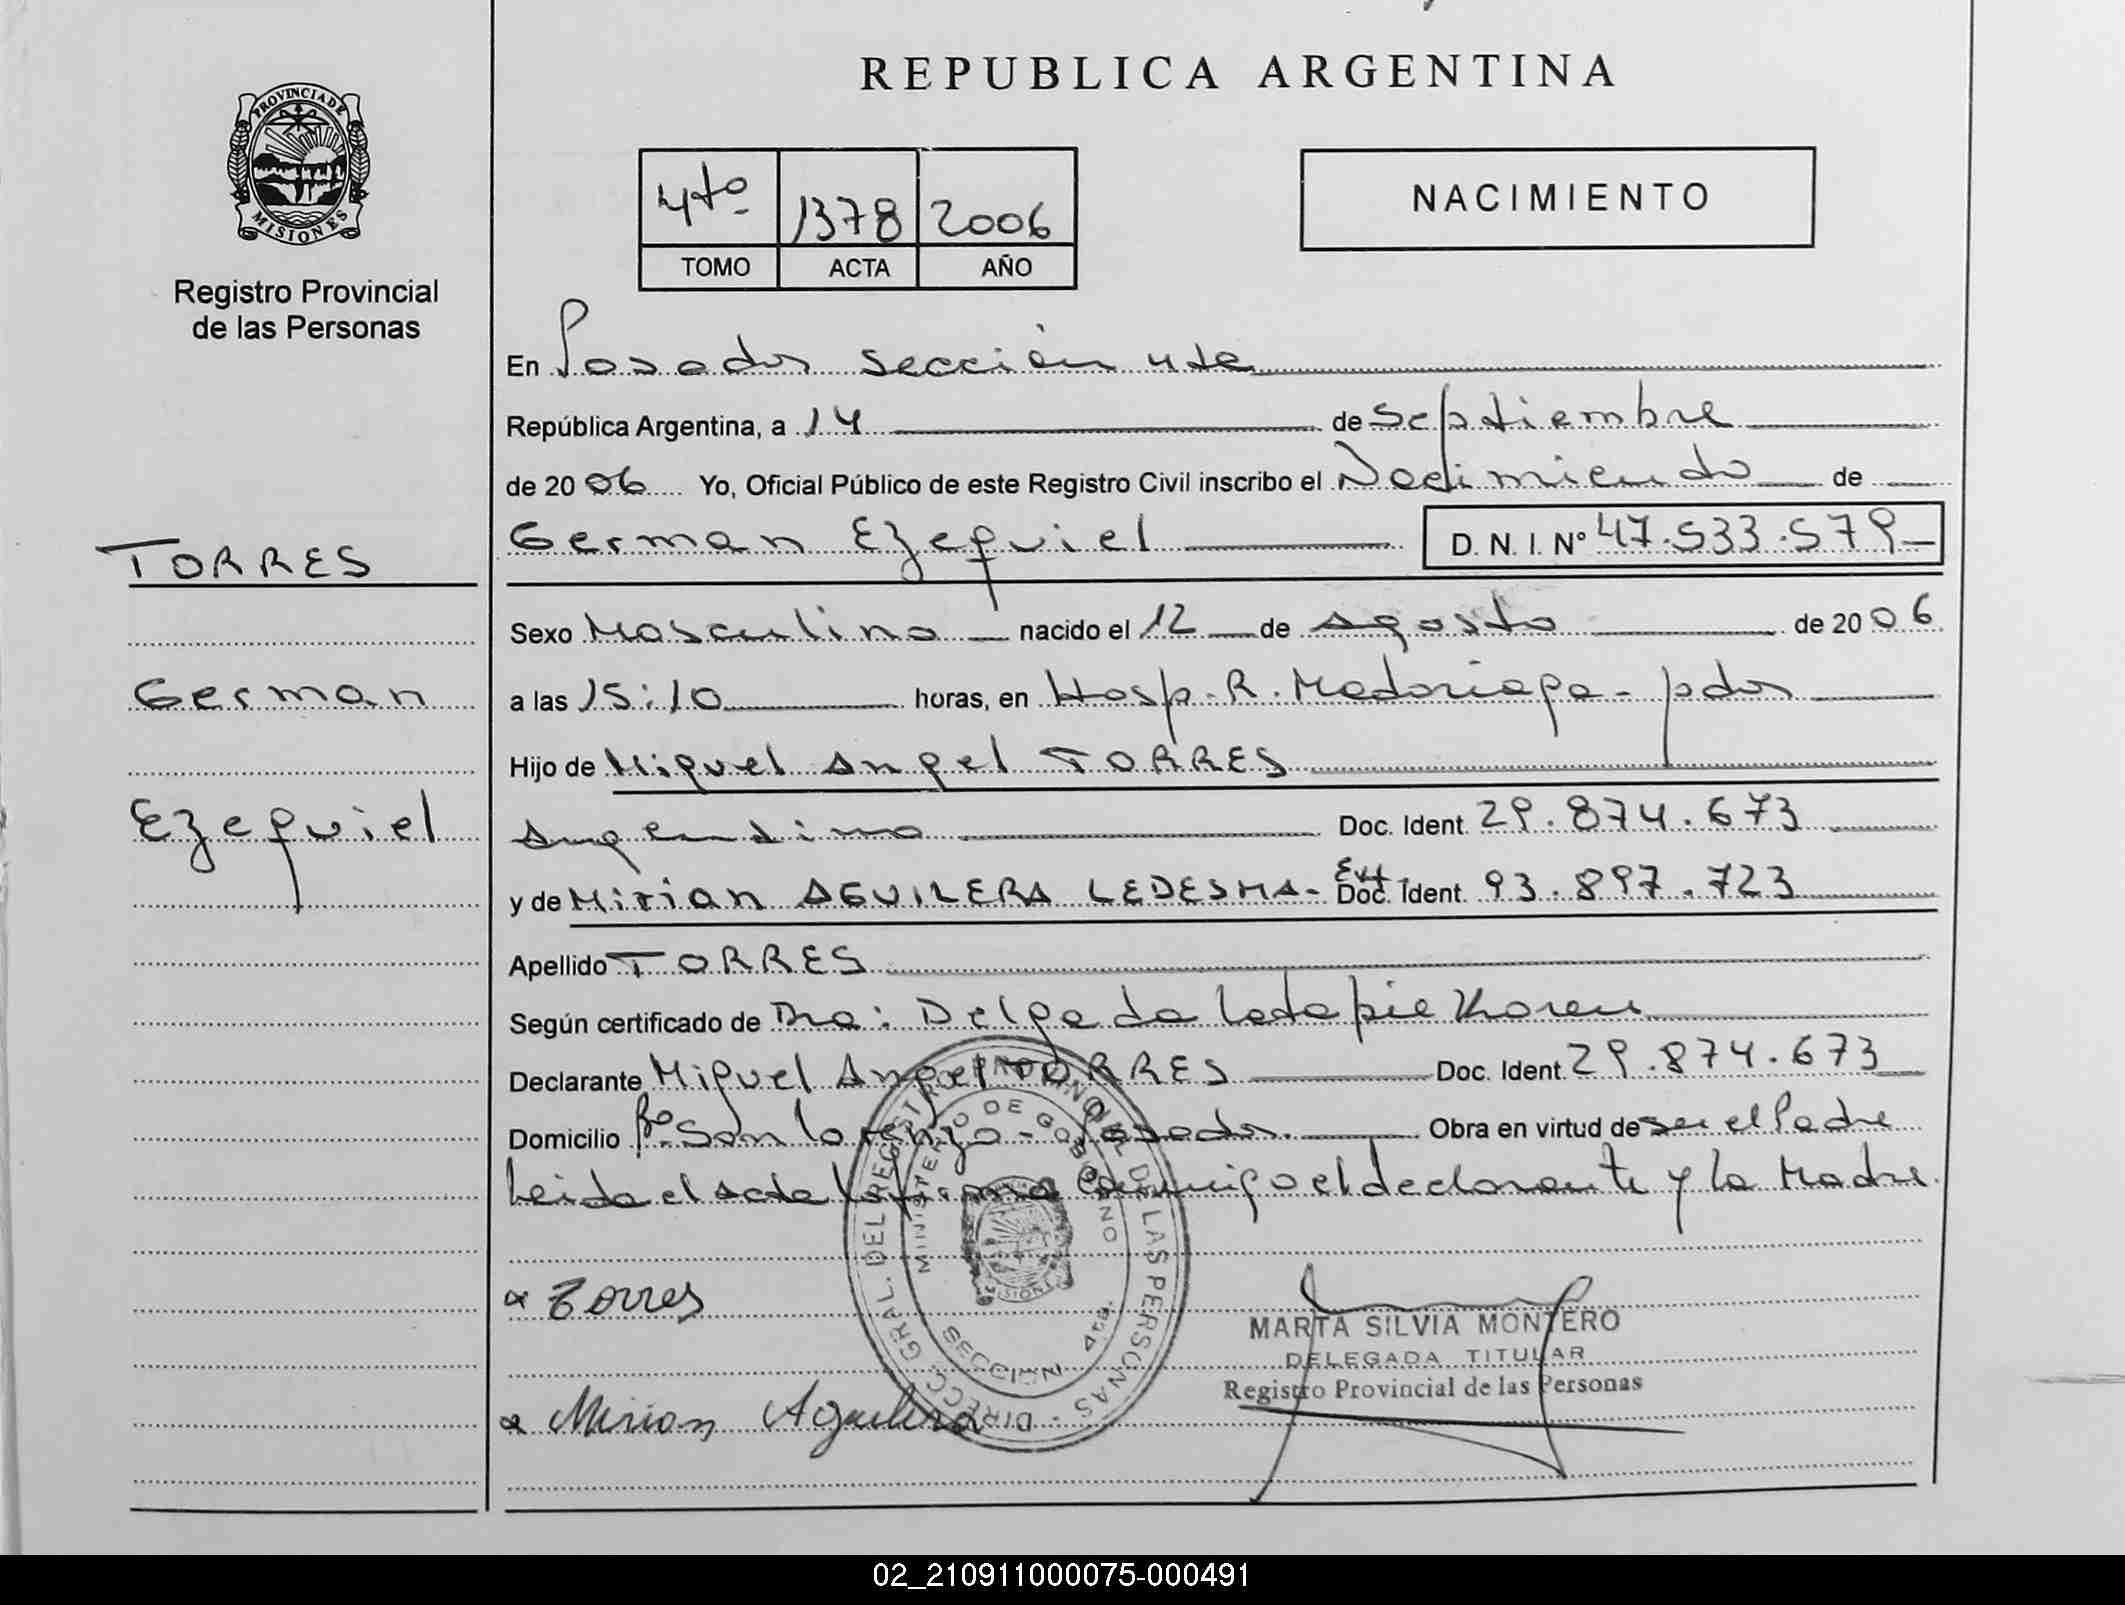 REPUBLICA ARGENTINA
PROVINCIA DE MISIONES
Registro Provincial
de las Personas
4to 1378 2006
TOMO ACTA AÑO
NACIMIENTO
En Posadas sección 4ta
República Argentina, a 14 de Septiembre
de 2006 Yo, Oficial Público de este Registro Civil inscribo el Nacimiento de
German Ezequiel D. N. I. Nº 47.533.579
TORRES
German
Ezequiel
Sexo Masculino nacido el 12 de Agosto de 2006
a las 15:10 horas, en Hosp. R. Madariaga - pdas
Hijo de Miguel Angel TORRES
Argentino Doc. Ident. 29.874.673
y de Mirian AGUILERA LEDESMA - Ext. Doc. Ident. 93.897.723
Apellido TORRES
Según certificado de Dra: Delgado Karen
Declarante Miguel Angel TORRES Doc. Ident. 29.874.673
Domicilio Bº San Lorenzo - Posadas. Obra en virtud de ser el Padre
Leida el acta la firma conmigo el declarante y la Madre
DIRECC. GRAL. DEL REGISTRO PROVINCIAL DE LAS PERSONAS
MINISTERIO DE GOBIERNO
MISIONES
SECCION 4ta.
Torres
MARTA SILVIA MONTERO
DELEGADA TITULAR
Registro Provincial de las Personas
Mirian Aguilera
02_210911000075-000491